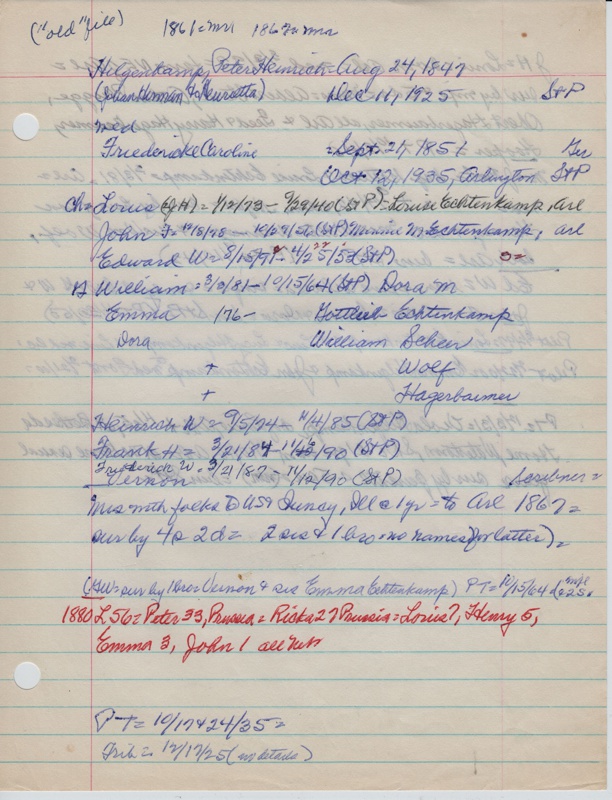 ("old" file) 1861 = mrs 1867 = mrs
Hilgenkamp, Peter Heinrich = Aug 24, 1847
(Johan Herman & Henrietta) Dec 11, 1925 St P
med
Friedericke Caroline = Sept 21, 1851 Ger
Oct 12, 1935, Arlington St P
Ch = Louis (JH) = 1/12/73 - 9/29/40 (St P) - Louise Echtenkamp, Arl
John F = 12/8/78 - 10/27/56 (St P) Minnie M Echtenkamp, Arl
Edward W = 8/15/91 - 4/25/52 (St P)
William = 3/3/81 - 10/15/64 (St P) Dora M
Emma 176 - Gottlieb Echtenkamp
Dora William Scheer
+ Wolf
+ Hagerbaumer
Heinrich W = 9/5/74 - 11/4/85 (St P)
Frank H = 3/21/87 - 11/12/90 (St P)
Friederich W = 3/21/87 - 11/12/90 (St P)
Vernon Scribner =
Mrs with folks to USA Quincy, Ill c 1 yr = to Arl 1867 =
sur by 4s 2d = 2 sis & 1 bro = no names (for latter) =
(JHW = sur by 1 bro = Vernon & sis Emma Echtenkamp) PT = 10/15/64
1880 L 56 = Peter 33, Prussia = Ricka 27 Prussia = Louis 7, Henry 5,
Emma 3, John 1 all Neb
PT = 10/17 & 24/35 =
Trib = 12/17/25 (no details)